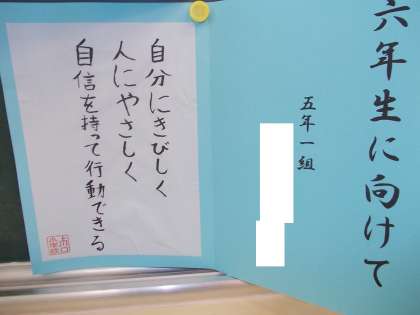 六年生に向けて
五年一組
自分にきびしく
人にやさしく
自信を持って行動できる